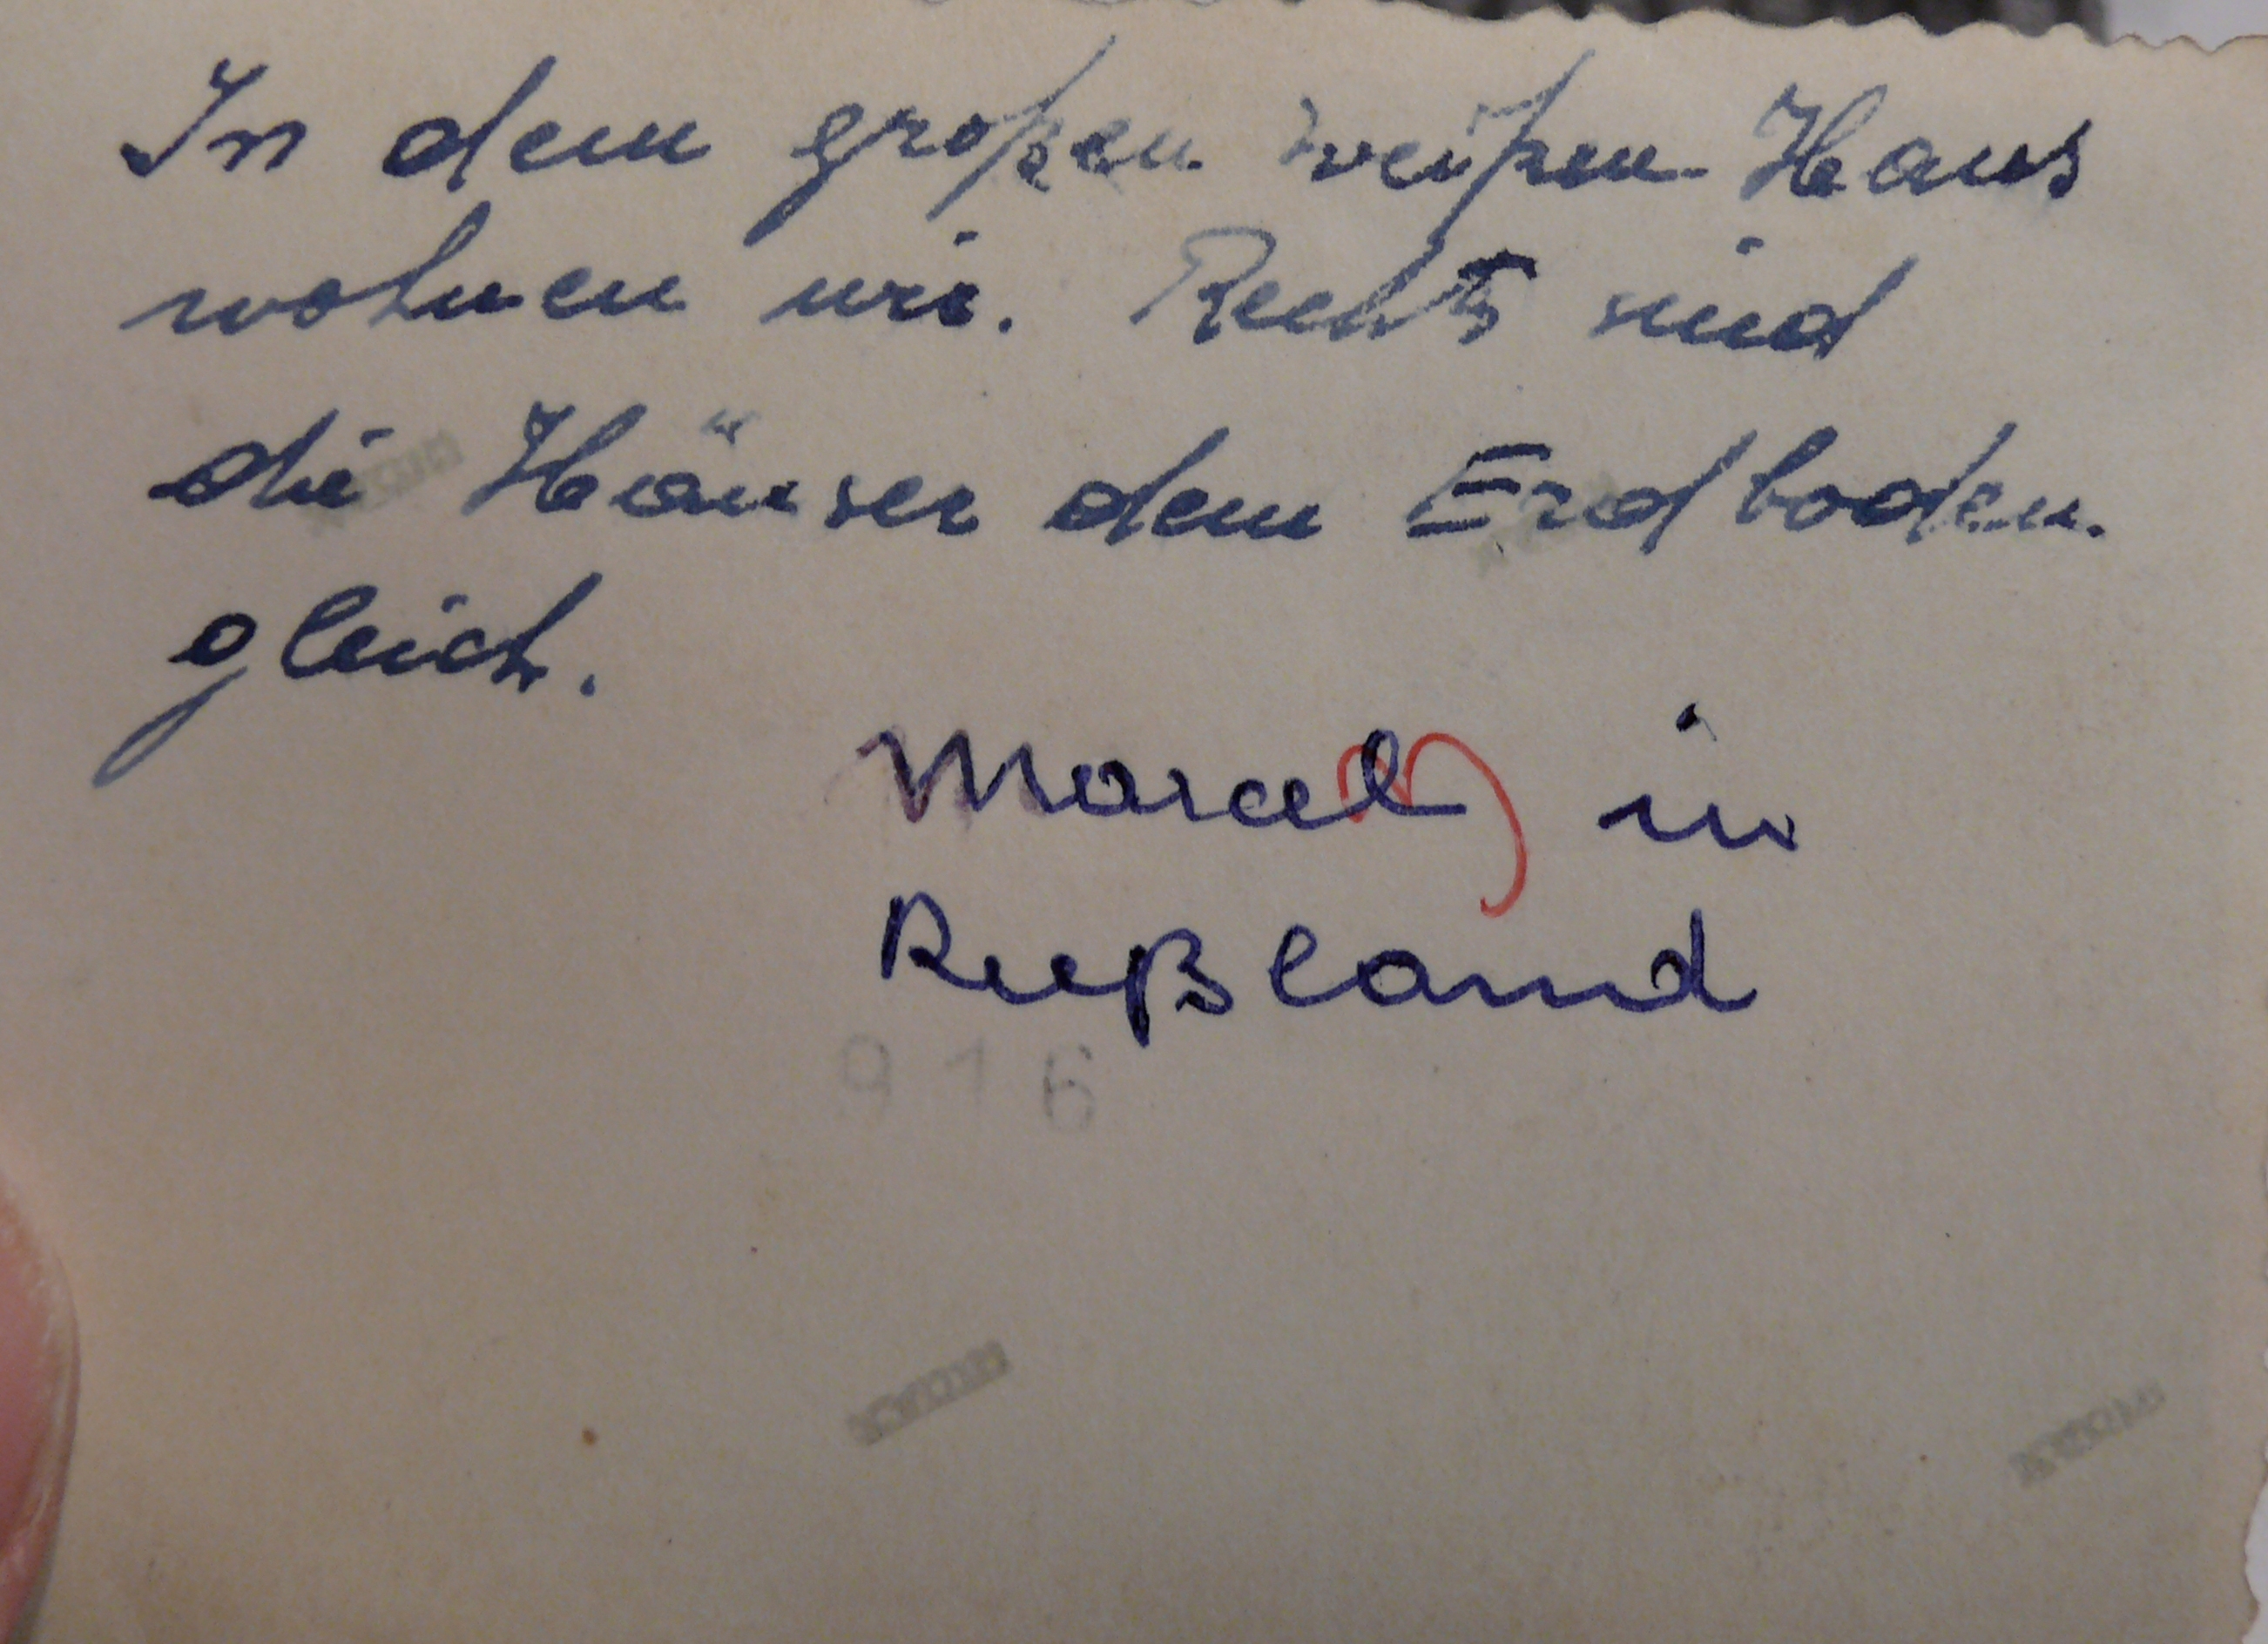 In dem großen weißen Haus
wohnen wir. Rechts sind
die Häuser dem Erdboden
gleich.
Marcel in
Rußland
916